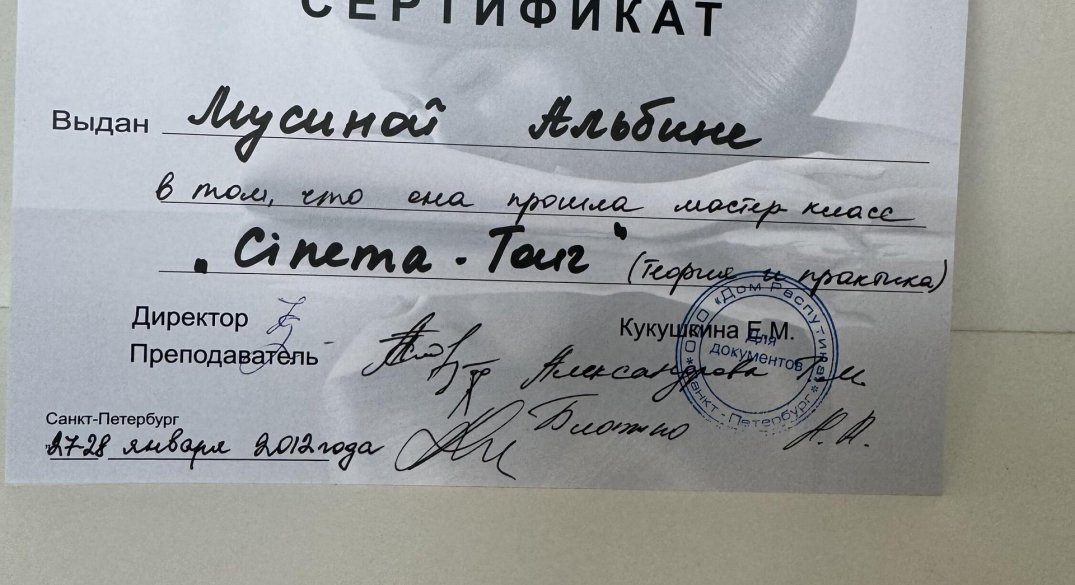 СЕРТИФИКАТ
Выдан Мусиной Альбине
в том, что она прошла мастер класс
"Cinema - Tour" (теория и практика)
Директор Кукушкина Е.М.
Преподаватель Александрова Т.М.
Санкт-Петербург
27-28 января 2012 года
Н. А.
ООО «Дом Распутина» * Санкт - Петербург *
Для документов